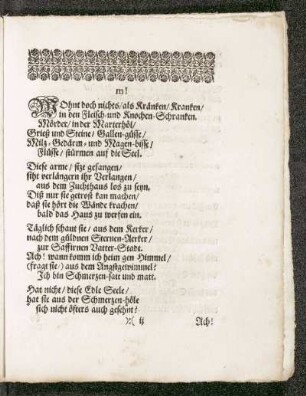 m!
WOhnt doch nichts/ als Kränken/ Kranken/
in den Fleisch-und Knochen-Schranken.
Mörder/ in der Marterhöl/
Grieß und Steine/ Gallen-güsse/
Miltz-Gedärm- und Magen-bisse/
Flüsse/ stürmen auf die Seel.
Diese arme/ sitzt gefangen/
siht verlängern ihr Verlangen/
aus dem Zuchthaus los zu seyn.
Diß nur sie getrost kan machen/
daß sie hört die Wände krachen/
bald das Haus zu werfen ein.
Täglich schaut sie/ aus dem Kerker/
nach dem güldnen Sternen-Aerker/
zur Saffirnen Vatter-Stadt.
Ach! wann komm ich heim gen Himmel/
(fragt sie/) aus dem Angstgetümmel?
Ich bin Schmerzen-satt und matt.
Hat nicht/ diese Edle Seele/
hat sie aus der Schmerzen-höle
sich nicht öfters auch gesehnt?
):( ij
Ach!